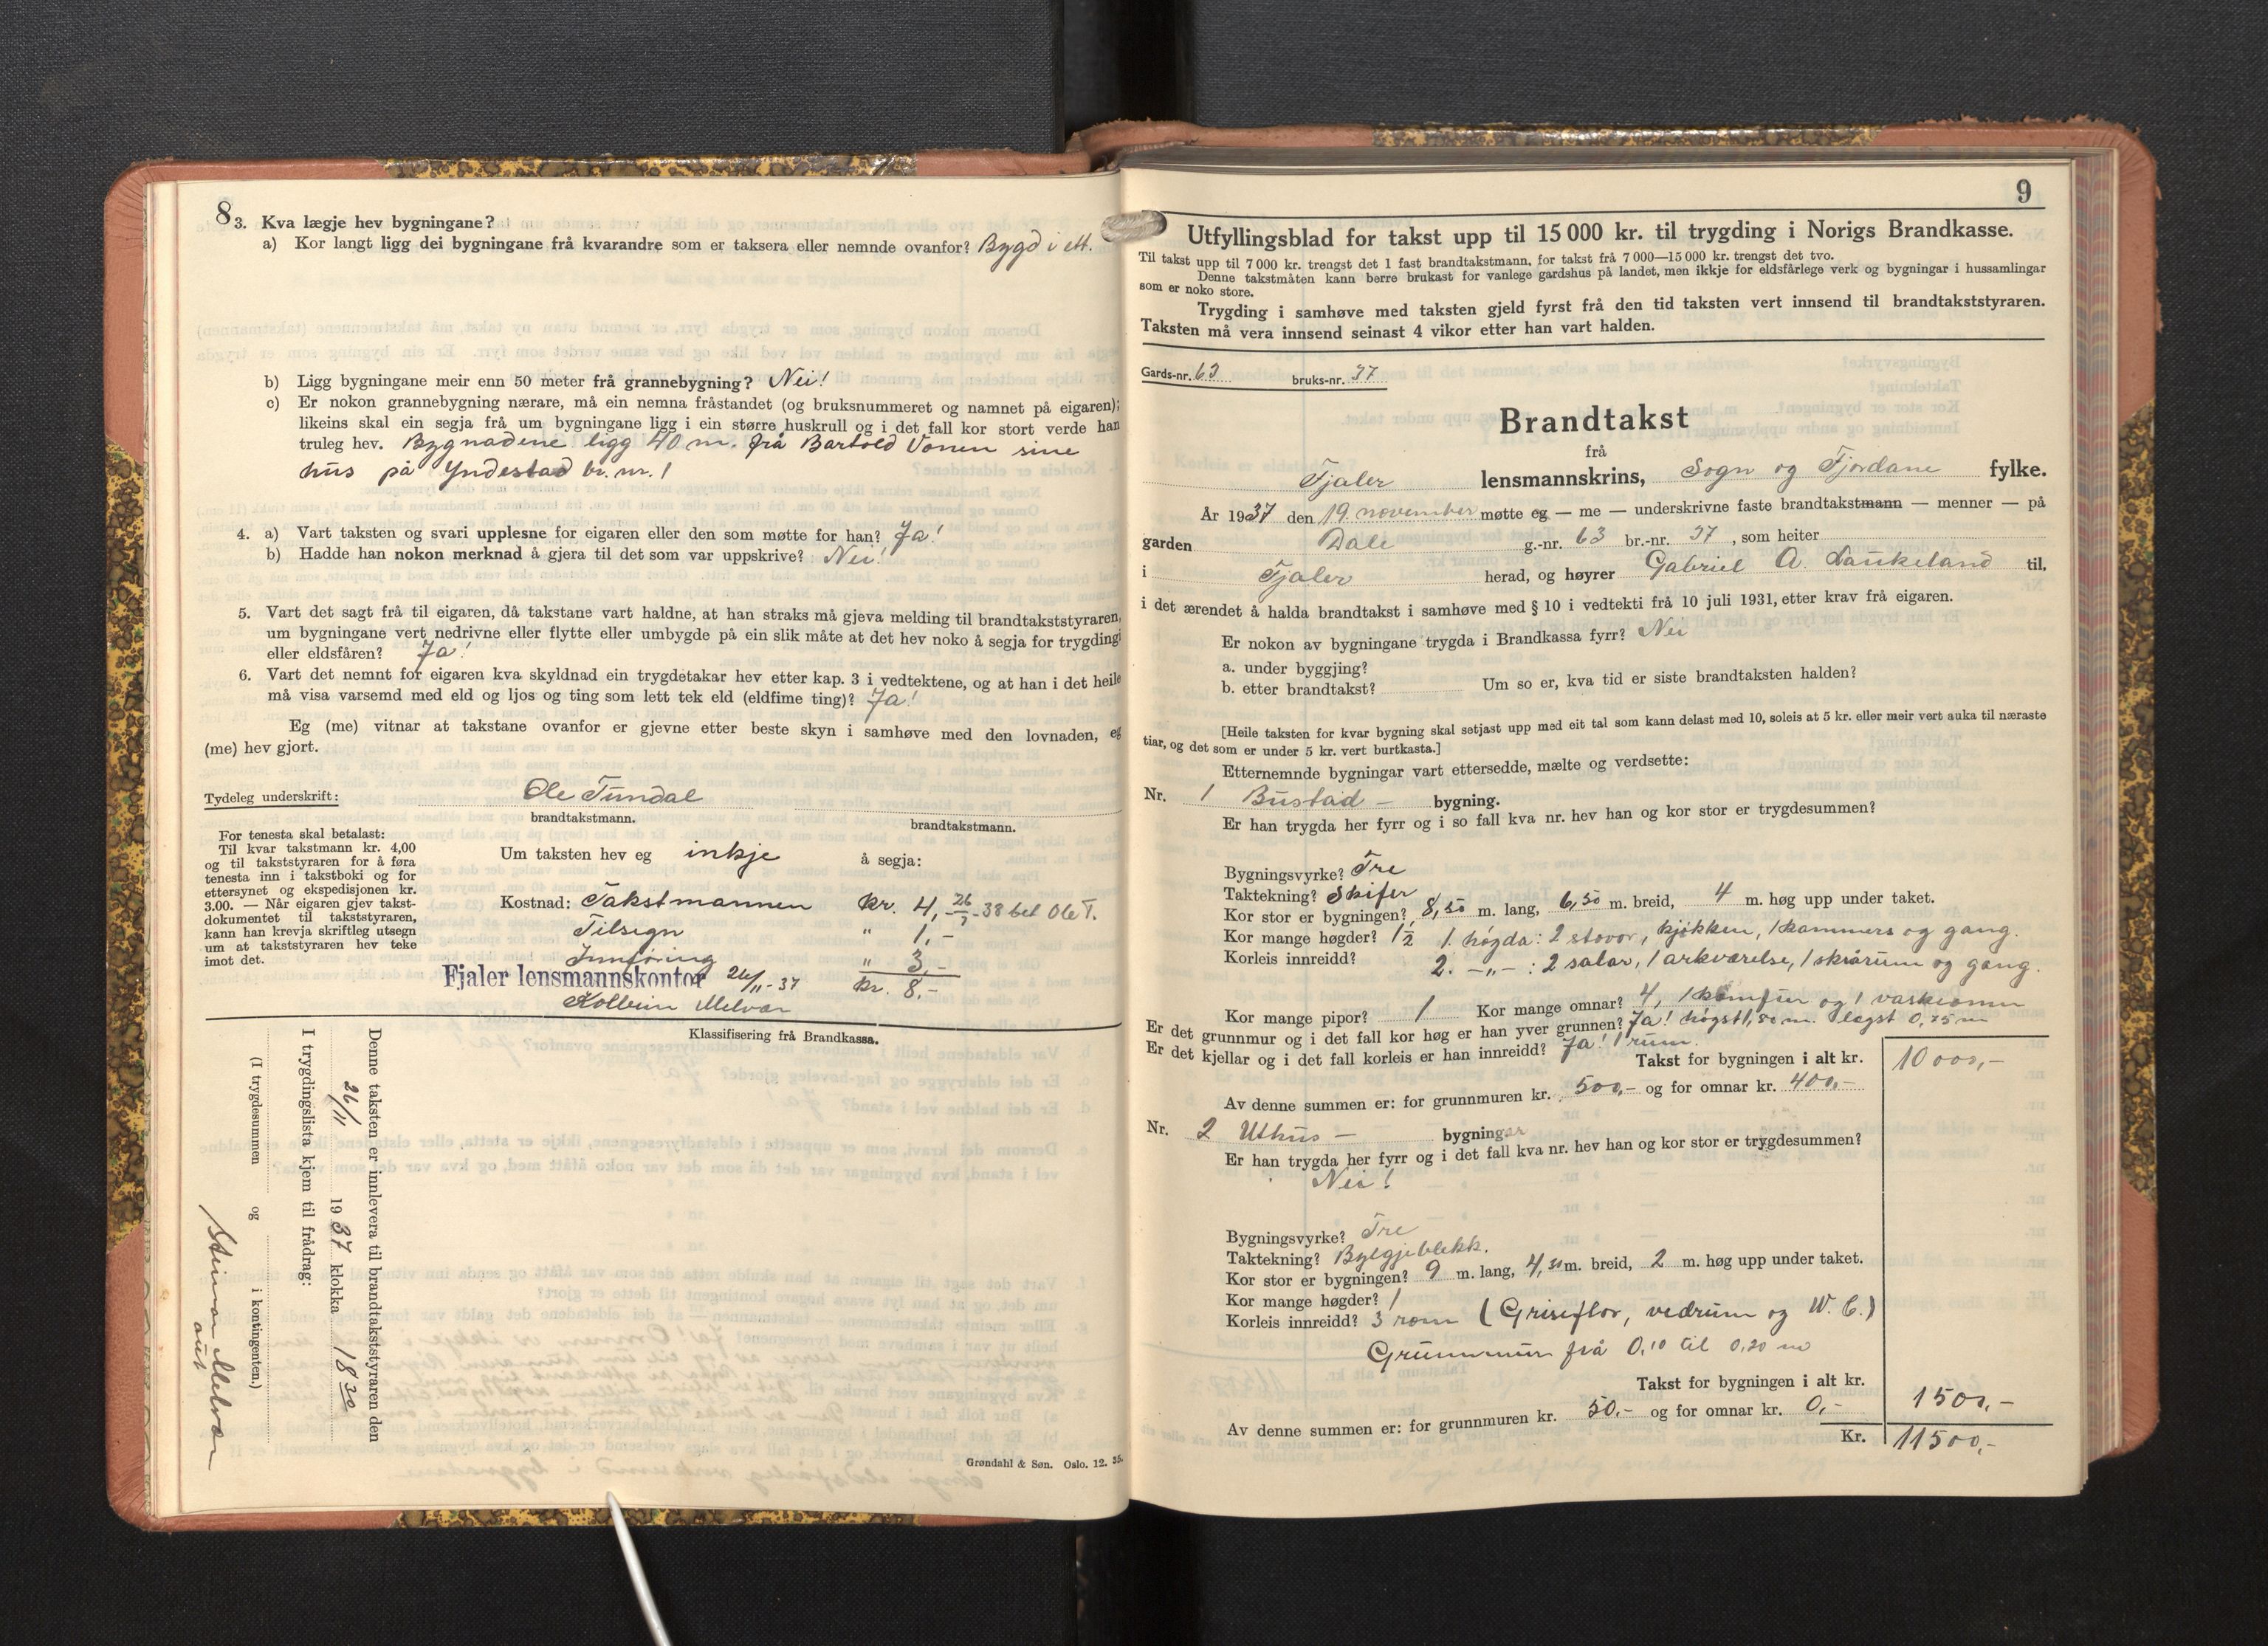 8
3. Kva lægje hev bygningane?
a) Kor langt ligg dei bygningane frå kvarandre som er taksera eller nemnde ovanfor? Bygd i ett.
b) Ligg bygningane meir enn 50 meter frå grannebygning? Nei!
c) Er nokon grannebygning nærare, må ein nemna fråstandet (og bruksnummeret og namnet på eigaren);
likeins skal ein segja frå um bygningane ligg i ein større huskrull og i det fall kor stort verde han
truleg hev. Bygnadene ligg 40 m. frå Bartold Vonen sine
hus på Yndestad br. nr. 1
4. a) Vart taksten og svari upplesne for eigaren eller den som møtte for han? Ja!
b) Hadde han nokon merknad å gjera til det som var uppskrive? Nei!
5. Vart det sagt frå til eigaren, då takstane vart haldne, at han straks må gjeva melding til brandtakststyraren,
um bygningane vert nedrivne eller flytte eller umbygde på ein slik måte at det hev noko å segja for trygdingi
eller eldsfåren? Ja!
6. Vart det nemnt for eigaren kva skyldnad ein trygdetakar hev etter kap. 3 i vedtektene, og at han i det heile
må visa varsemd med eld og ljos og ting som lett tek eld (eldfime ting)? Ja!
Eg (me) vitnar at takstane ovanfor er gjevne etter beste skyn i samhøve med den lovnaden, eg
(me) hev gjort.
Tydeleg underskrift: Ole Tundal
brandtakstmann. brandtakstmann.
For tenesta skal betalast:
Til kvar takstmann kr. 4,00
og til takststyraren for å føra
tenesta inn i takstboki og for
ettersynet og ekspedisjonen kr.
3.00. — Når eigaren gjev takst-
dokumentet til takststyraren,
kann han krevja skriftleg utsegn
um at takststyraren hev teke
imot det.
Um taksten hev eg inkje å segja:
Kostnad: Takstmannen kr. 4,- 26/7-38 bet Ole T.
Tilsegn " 1,-
Innføring " 3,-
Fjaler lensmannskontor 26/11-37 kr. 8,-
Kolbein Melvær
Klassifisering frå Brandkassa.
Denne taksten er innlevera til brandtakststyraren den
26/11 1937 klokka 18 30
I trygdingslista kjem til frådrag:
(I trygdesummen og i kontingenten.)
Steinar Melvær
aut
Grøndahl & Søn. Oslo. 12. 35.
9
Utfyllingsblad for takst upp til 15 000 kr. til trygding i Norigs Brandkasse.
Til takst upp til 7 000 kr. trengst det 1 fast brandtakstmann, for takst frå 7 000—15 000 kr. trengst det tvo.
Denne takstmåten kann berre brukast for vanlege gardshus på landet, men ikkje for eldsfårlege verk og bygningar i hussamlingar
som er noko store.
Trygding i samhøve med taksten gjeld fyrst frå den tid taksten vert innsend til brandtakststyraren.
Taksten må vera innsend seinast 4 vikor etter han vart halden.
Gards-nr. 63 bruks-nr. 37
Brandtakst
frå
Fjaler lensmannskrins, Sogn og Fjordane fylke.
År 1937 den 19. november møtte eg — me — underskrivne faste brandtakstmann — menner — på
garden Dale g.-nr. 63 br.-nr. 37, som heiter
i Fjaler herad, og høyrer Gabriel A. Laukeland til,
i det ærendet å halda brandtakst i samhøve med § 10 i vedtekti frå 10 juli 1931, etter krav frå eigaren.
Er nokon av bygningane trygda i Brandkassa fyrr? Nei
a. under byggjing?
b. etter brandtakst? Um so er, kva tid er siste brandtaksten halden?
[Heile taksten for kvar bygning skal setjast upp med eit tal som kann delast med 10, soleis at 5 kr. eller meir vert auka til næraste
tiar, og det som er under 5 kr. vert burtkasta.]
Etternemnde bygningar vart ettersedde, mælte og verdsette:
Nr. 1 Bustad — bygning.
Er han trygda her fyrr og i so fall kva nr. hev han og kor stor er trygdesummen?
Bygningsvyrke? Tre
Taktekning? Skifer
Kor stor er bygningen? 8,50 m. lang, 6,50 m. breid, 4 m. høg upp under taket.
Kor mange høgder? 1½ 1. høgda: 2 stovor, kjøkken, 1 kammers og gang.
Korleis innreidd? 2. -"- : 2 salar, 1 arkværelse, 1 skrårum og gang.
Kor mange pipor? 1 Kor mange omnar? 4, 1 komfur og 1 vaskeomn
Er det grunnmur og i det fall kor høg er han yver grunnen? Ja! høgst 1,50 m. lægst 0,75 m
Er det kjellar og i det fall korleis er han innreidd? Ja! 1 rum.
Takst for bygningen i alt kr. 10 000,-
Av denne summen er: for grunnmuren kr. 500,- og for omnar kr. 400,-
Nr. 2 Uthus — bygningar
Er han trygda her fyrr og i det fall kva nr. hev han og kor stor er trygdesummen?
Nei!
Bygningsvyrke? Tre
Taktekning? Bylgjeblekk.
Kor stor er bygningen? 9 m. lang, 4,50 m. breid, 2 m. høg upp under taket.
Kor mange høgder? 1
Korleis innreidd? 3 rom (Griseflor, vedrum og W. C.)
Grunnmur frå 0,10 til 0,20 m
Takst for bygningen i alt kr. 1500,-
Av denne summen er: for grunnmuren kr. 50,- og for omnar kr. 0,-
Kr. 11500,-